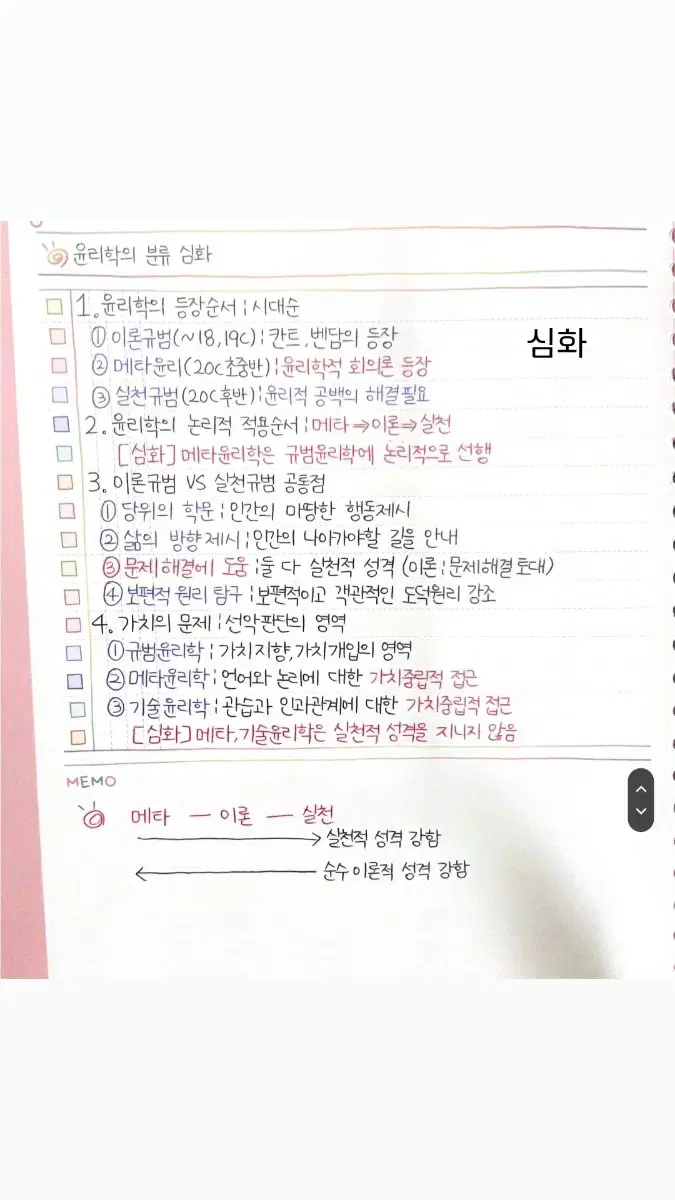 윤리학의 분류 심화
심화
1. 윤리학의 등장순서 | 시대순
① 이론규범(~18,19C) | 칸트, 벤담의 등장
② 메타윤리(20C초중반) | 윤리학적 회의론 등장
③ 실천규범(20C후반) | 윤리적 공백의 해결필요
2. 윤리학의 논리적 적용순서 | 메타⇒이론⇒실천
[심화] 메타윤리학은 규범윤리학에 논리적으로 선행
3. 이론규범 VS 실천규범 공통점
① 당위의 학문 | 인간의 마땅한 행동제시
② 삶의 방향제시 | 인간의 나아가야할 길을 안내
③ 문제해결에 도움 | 둘 다 실천적 성격 (이론 | 문제해결 토대)
④ 보편적 원리 탐구 | 보편적이고 객관적인 도덕원리 강조
4. 가치의 문제 | 선악판단의 영역
① 규범윤리학 | 가치지향, 가치개입의 영역
② 메타윤리학 | 언어와 논리에 대한 가치중립적 접근
③ 기술윤리학 | 관습과 인과관계에 대한 가치중립적 접근
[심화] 메타, 기술윤리학은 실천적 성격을 지니지 않음
MEMO
메타 — 이론 — 실천
→ 실천적 성격 강함
← 순수 이론적 성격 강함